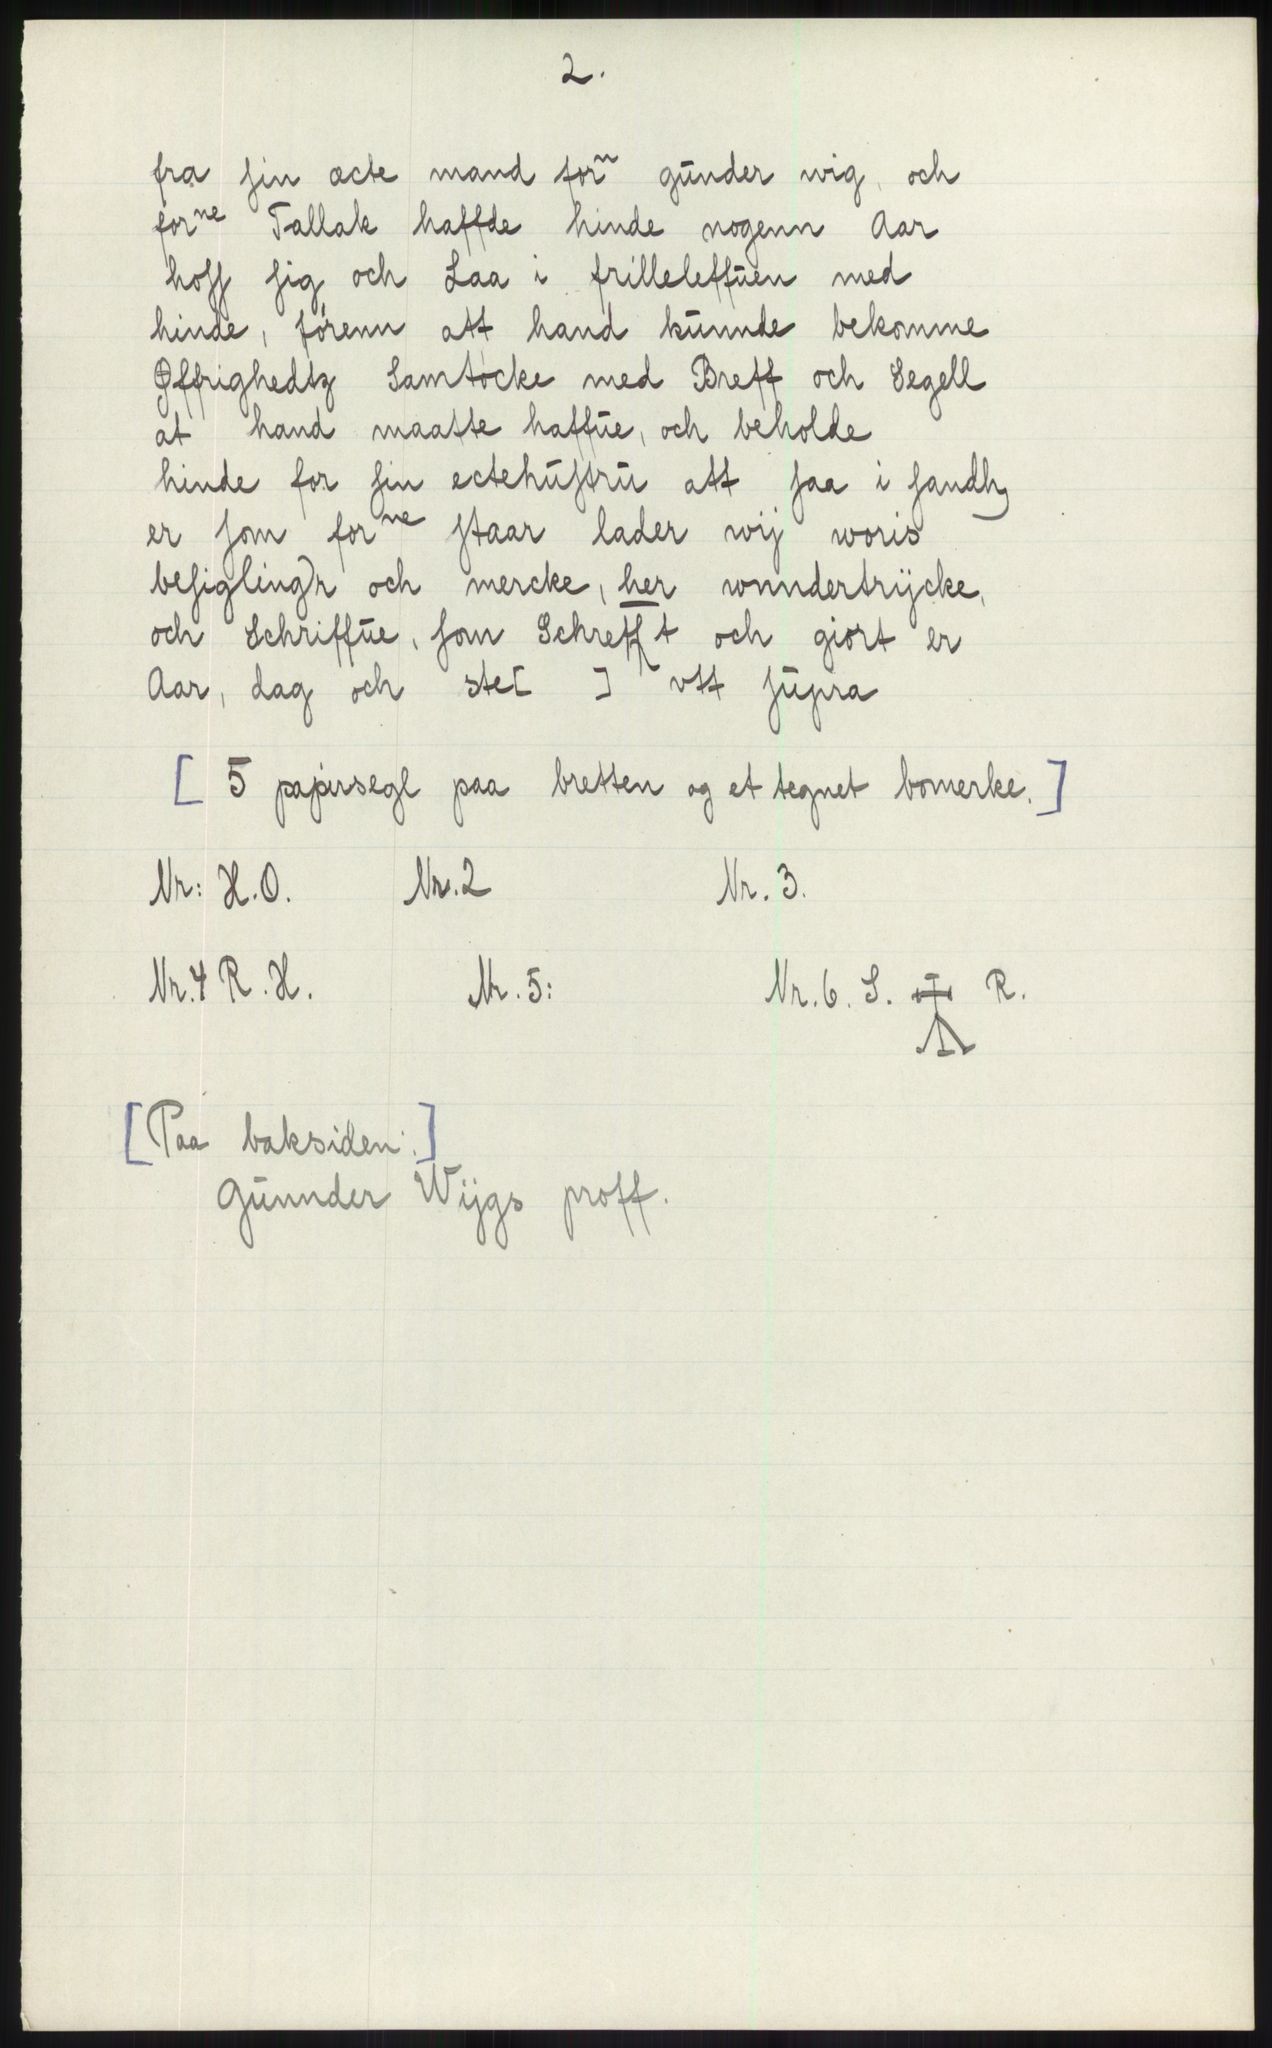 2.
fra sin æcte mand forⁿ günder wig, och
forⁿᵉ Tallak haffde hinde nogenn Aar
hoss sig och Laa i frilleleffüen med
hinde, förenn att hand künnde bekomme
Øffrighedtz Samtøcke med Breff och Segell
at hand maatte haffüe, och beholde
hinde for sin ectehüstrü att saa i sandh
er som forⁿᵉ staar lader wij woris
besigling'r och mercke, her wnndertrÿcke,
och Schriffüe, som Schrefft och giort er
Aar, dag och ste[ ] vtt süpra
[ 5 papirsegl paa bretten og et tegnet bomerke. ]
Nr: H.O. Nr.2 Nr. 3.
Nr.4 R.H. Nr. 5: Nr. 6. S. R.
[Paa baksiden:]
Günnder Wijgs proff.